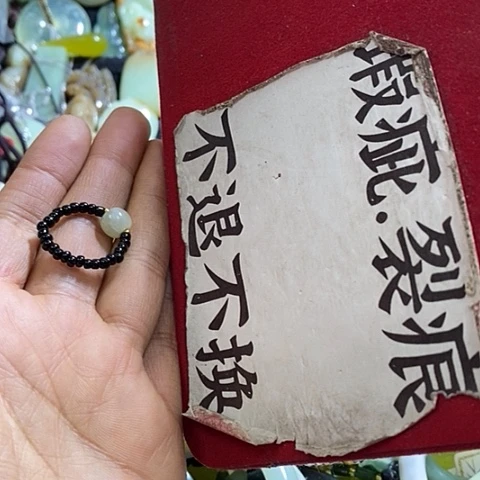 瑕疵·裂痕
不退不换